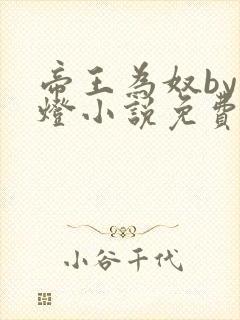 帝王為奴by
燈小說免費
小谷千代